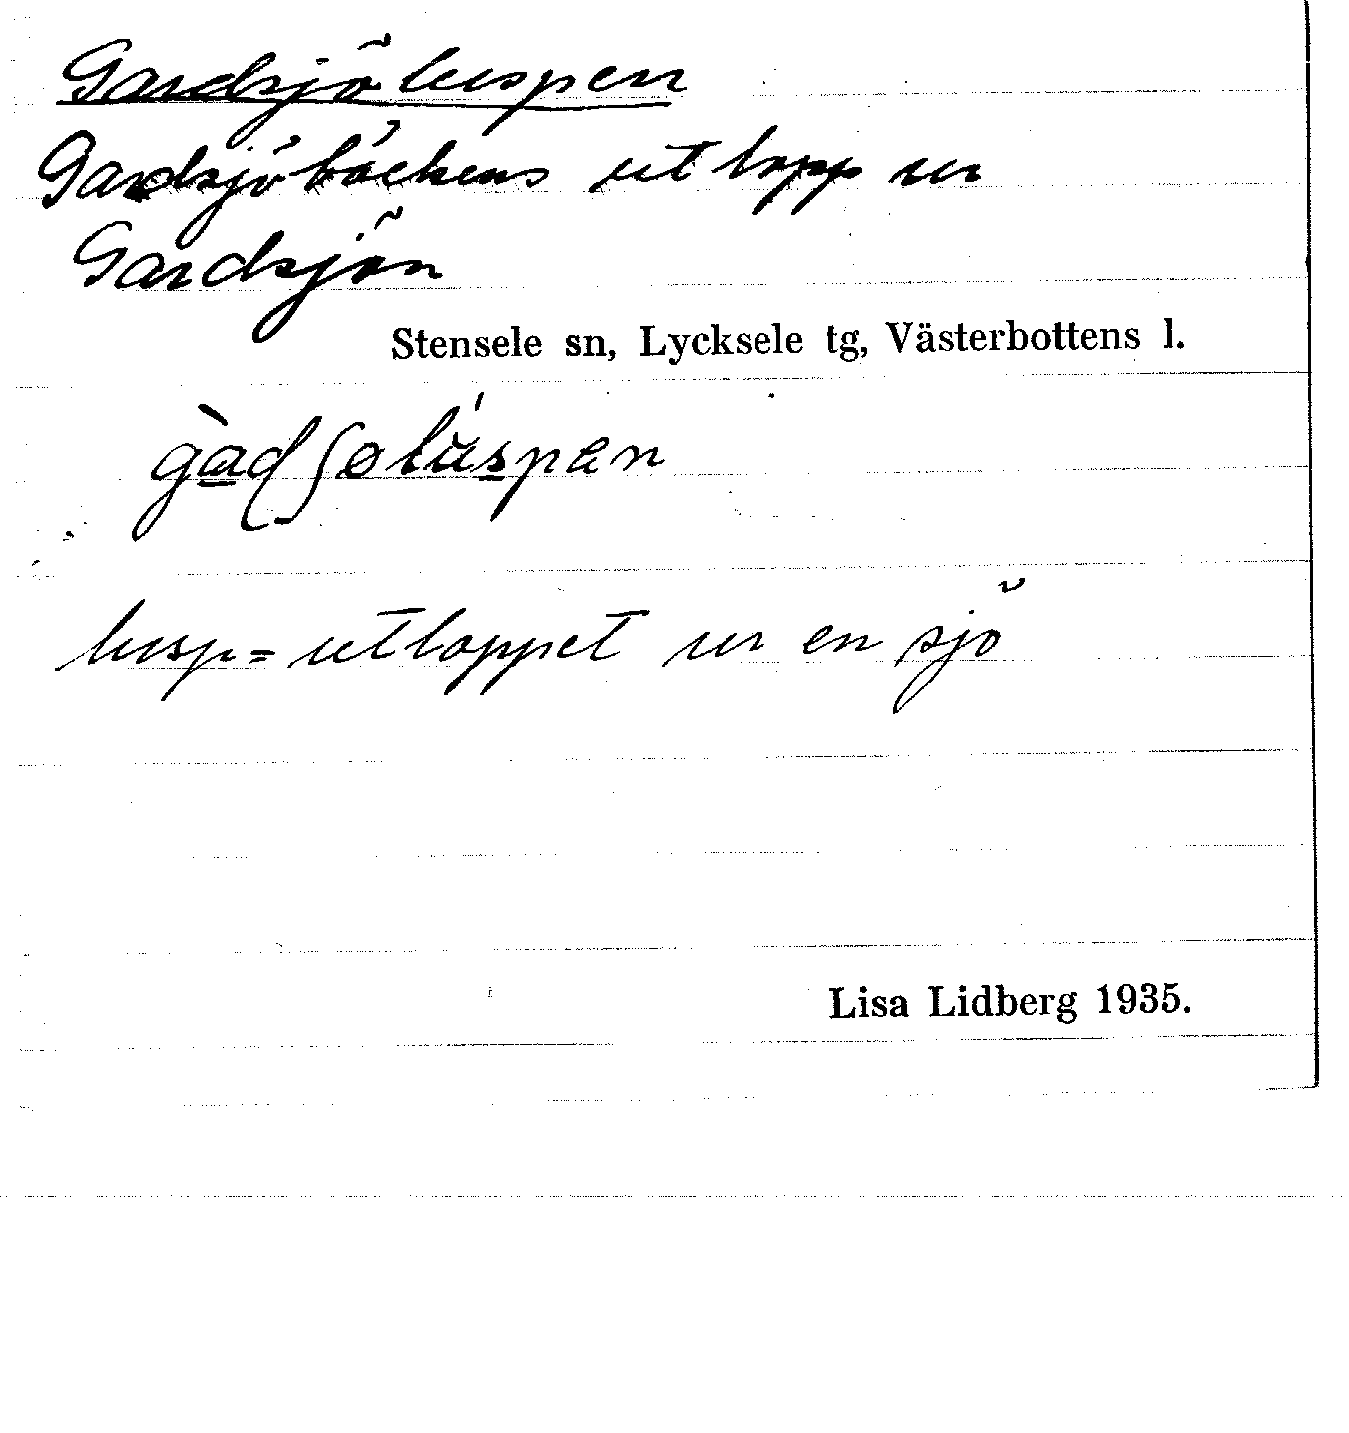 Gardsjöluspen
Gardsjöbäckens utlopp ur
Gardsjön
Stensele sn, Lycksele tg, Västerbottens l.
lusp = utloppet ur en sjö
Lisa Lidberg 1935.